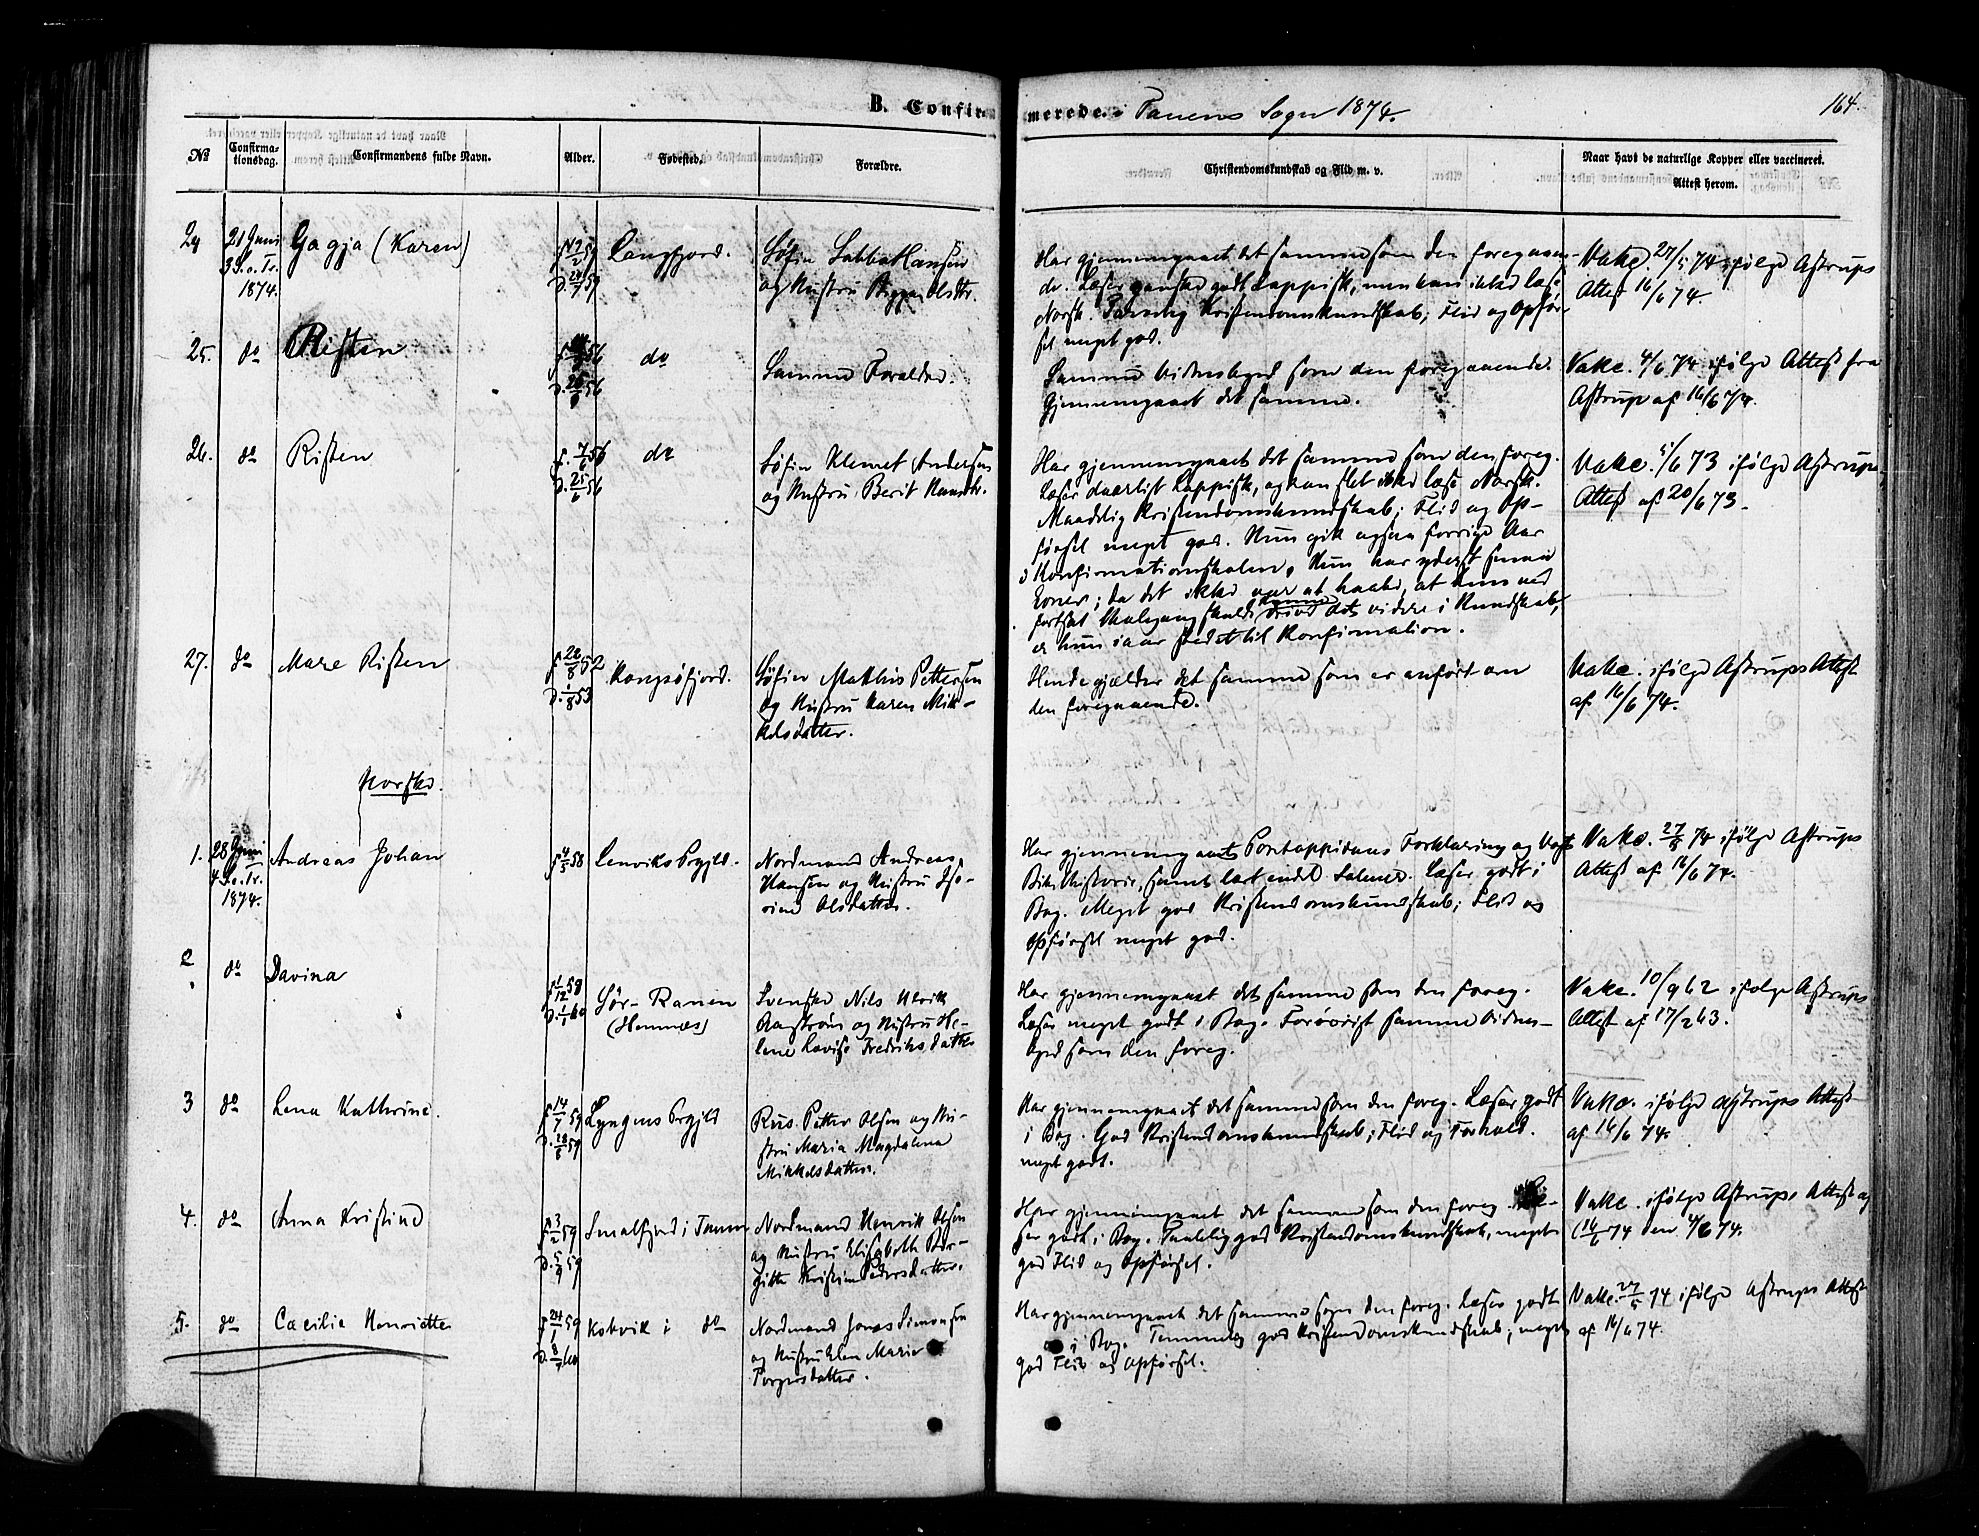 B. Confirmerede. Tanens Sogn 1874. 164.
No
Confirmationsdag.
Confirmandens fulde Navn.
Alder.
Fødested.
Forældre.
Christendomskundskab og Flid m. v.
Naar havt de naturlige Kopper eller vaccineret. Attest herom.
24
21 Juni
3 S. e. Tr.
1874.
Gagja (Karen)
Langfjord.
Søfin Sabba Hansen
og Hustru Olsdtr.
Har gjennemgaaet det samme som den foregaaen-
de. Læser ganske godt Lappisk, men kan ikke læse
Norsk. Kristendomskundskab; Flid og Opfør-
sel meget god.
Vakc. 27/5 74 ifølge Astrups
Attest 16/6 74.
25.
do
Risten
do
Samme Forældre.
Samme Vidnesbyrd som den foregaaende.
Gjennemgaaet det samme.
Vakc. 4/6 74 ifølge Attest fra
Astrup af 16/6 74.
26.
do
Risten
f. 7/6 56
d. 25/6 56
do
Søfin Klemet Andersen
og Hustru Berit
Har gjennemgaaet det samme som den foreg.
Læser daarligt Lappisk, og kan slet ikke læse Norsk.
Maadelig Kristendomskundskab; Flid og Op-
førsel meget god. Hun gik ogsaa forrige Aar
i Konfirmationsskolen. Hun har yderst smaa
Evner; da det ikke var at haabe, at hun ved
fortsat Skolegang skulde kunne drive det videre i Kundskab,
er hun iaar stedet til Konfirmation.
Vakc. 5/6 73 ifølge Astrups
Attest af 20/6 73.
27.
do
Mare Risten
f 22/8 52
d. 1/8 53
Kongsøfjord.
Søfin Mathis Pettersen
og Hustru Karen Mik-
kelsdatter.
Hende gjælder det samme som er anført om
den foregaaende.
Vakc. ifølge Astrups Attest
af 16/6 74.
Norske.
1.
28 Juni
4 S. e. Tr.
1874.
Andreas Johan
f 4/5 58
Lenviks Prgjld.
Nordmand Andreas
Hansen og Hustru
Olsdatter.
Har gjennemgaaet Pontoppidans Forklaring og Vogts
Bibelhistorie, samt lært endel Salmer. Læser godt i
Bog. Meget god Kristendomskundskab; Flid og
Opførsel meget god.
Vakc. 27/5 74 ifølge Astrups
Attest af 16/6 74.
2
do
Davina
f 1/12 58
d. 1/1 60
Sør-Ranen
(Hemnæs)
Svenske Nils Ulrik
og Hustru He-
lene Lovise Fredriksdatter
Har gjennemgaaet det samme som den foreg.
Læser meget godt i Bog. Forøvrigt samme Vidnes-
byrd som den foreg.
Vakc. 10/9 62 ifølge Astrups
Attest af 17/2 63.
3
do
Lena Kathrine.
f 14/7 59
d. 28/8 59
Lyngens Prgjld
Petter Olsen og Hu-
stru Maria Magdalena
Mikkelsdatter.
Har gjennemgaaet det samme som den foreg. Læser godt
i Bog. God Kristendomskundskab; Flid og Forhold
meget godt.
Vakc. ifølge Astrups Attest
af 16/6 74.
4.
do
Anna Kristine
f 3/2 59
d. 5/9 59
Smalfjord i Tanen
Nordmand Henrik Olsen
og Hustru Elisabeth Bir-
gitte Kristine Pedersdatter.
Har gjennemgaaet det samme som den foreg. Læ-
ser godt i Bog. Taalelig god Kristendomskundskab, meget
god Flid og Opførsel.
Vakc. ifølge Astrups Attest af
16/6 74 den 4/6 74.
5.
do
Cæcilie Henriette
f 24/1 59
d. 8/7 60
Kobvik i do
Nordmand Jonas Simonsen
og Hustru Elen Marie
Torgersdatter.
Har gjennemgaaet det samme som den foreg. Læser godt
i Bog. Temmelig god Kristendomskundskab; meget
god Flid og Opførsel.
Vakc. 27/5 74 ifølge Astrups Attest
af 16/6 74.